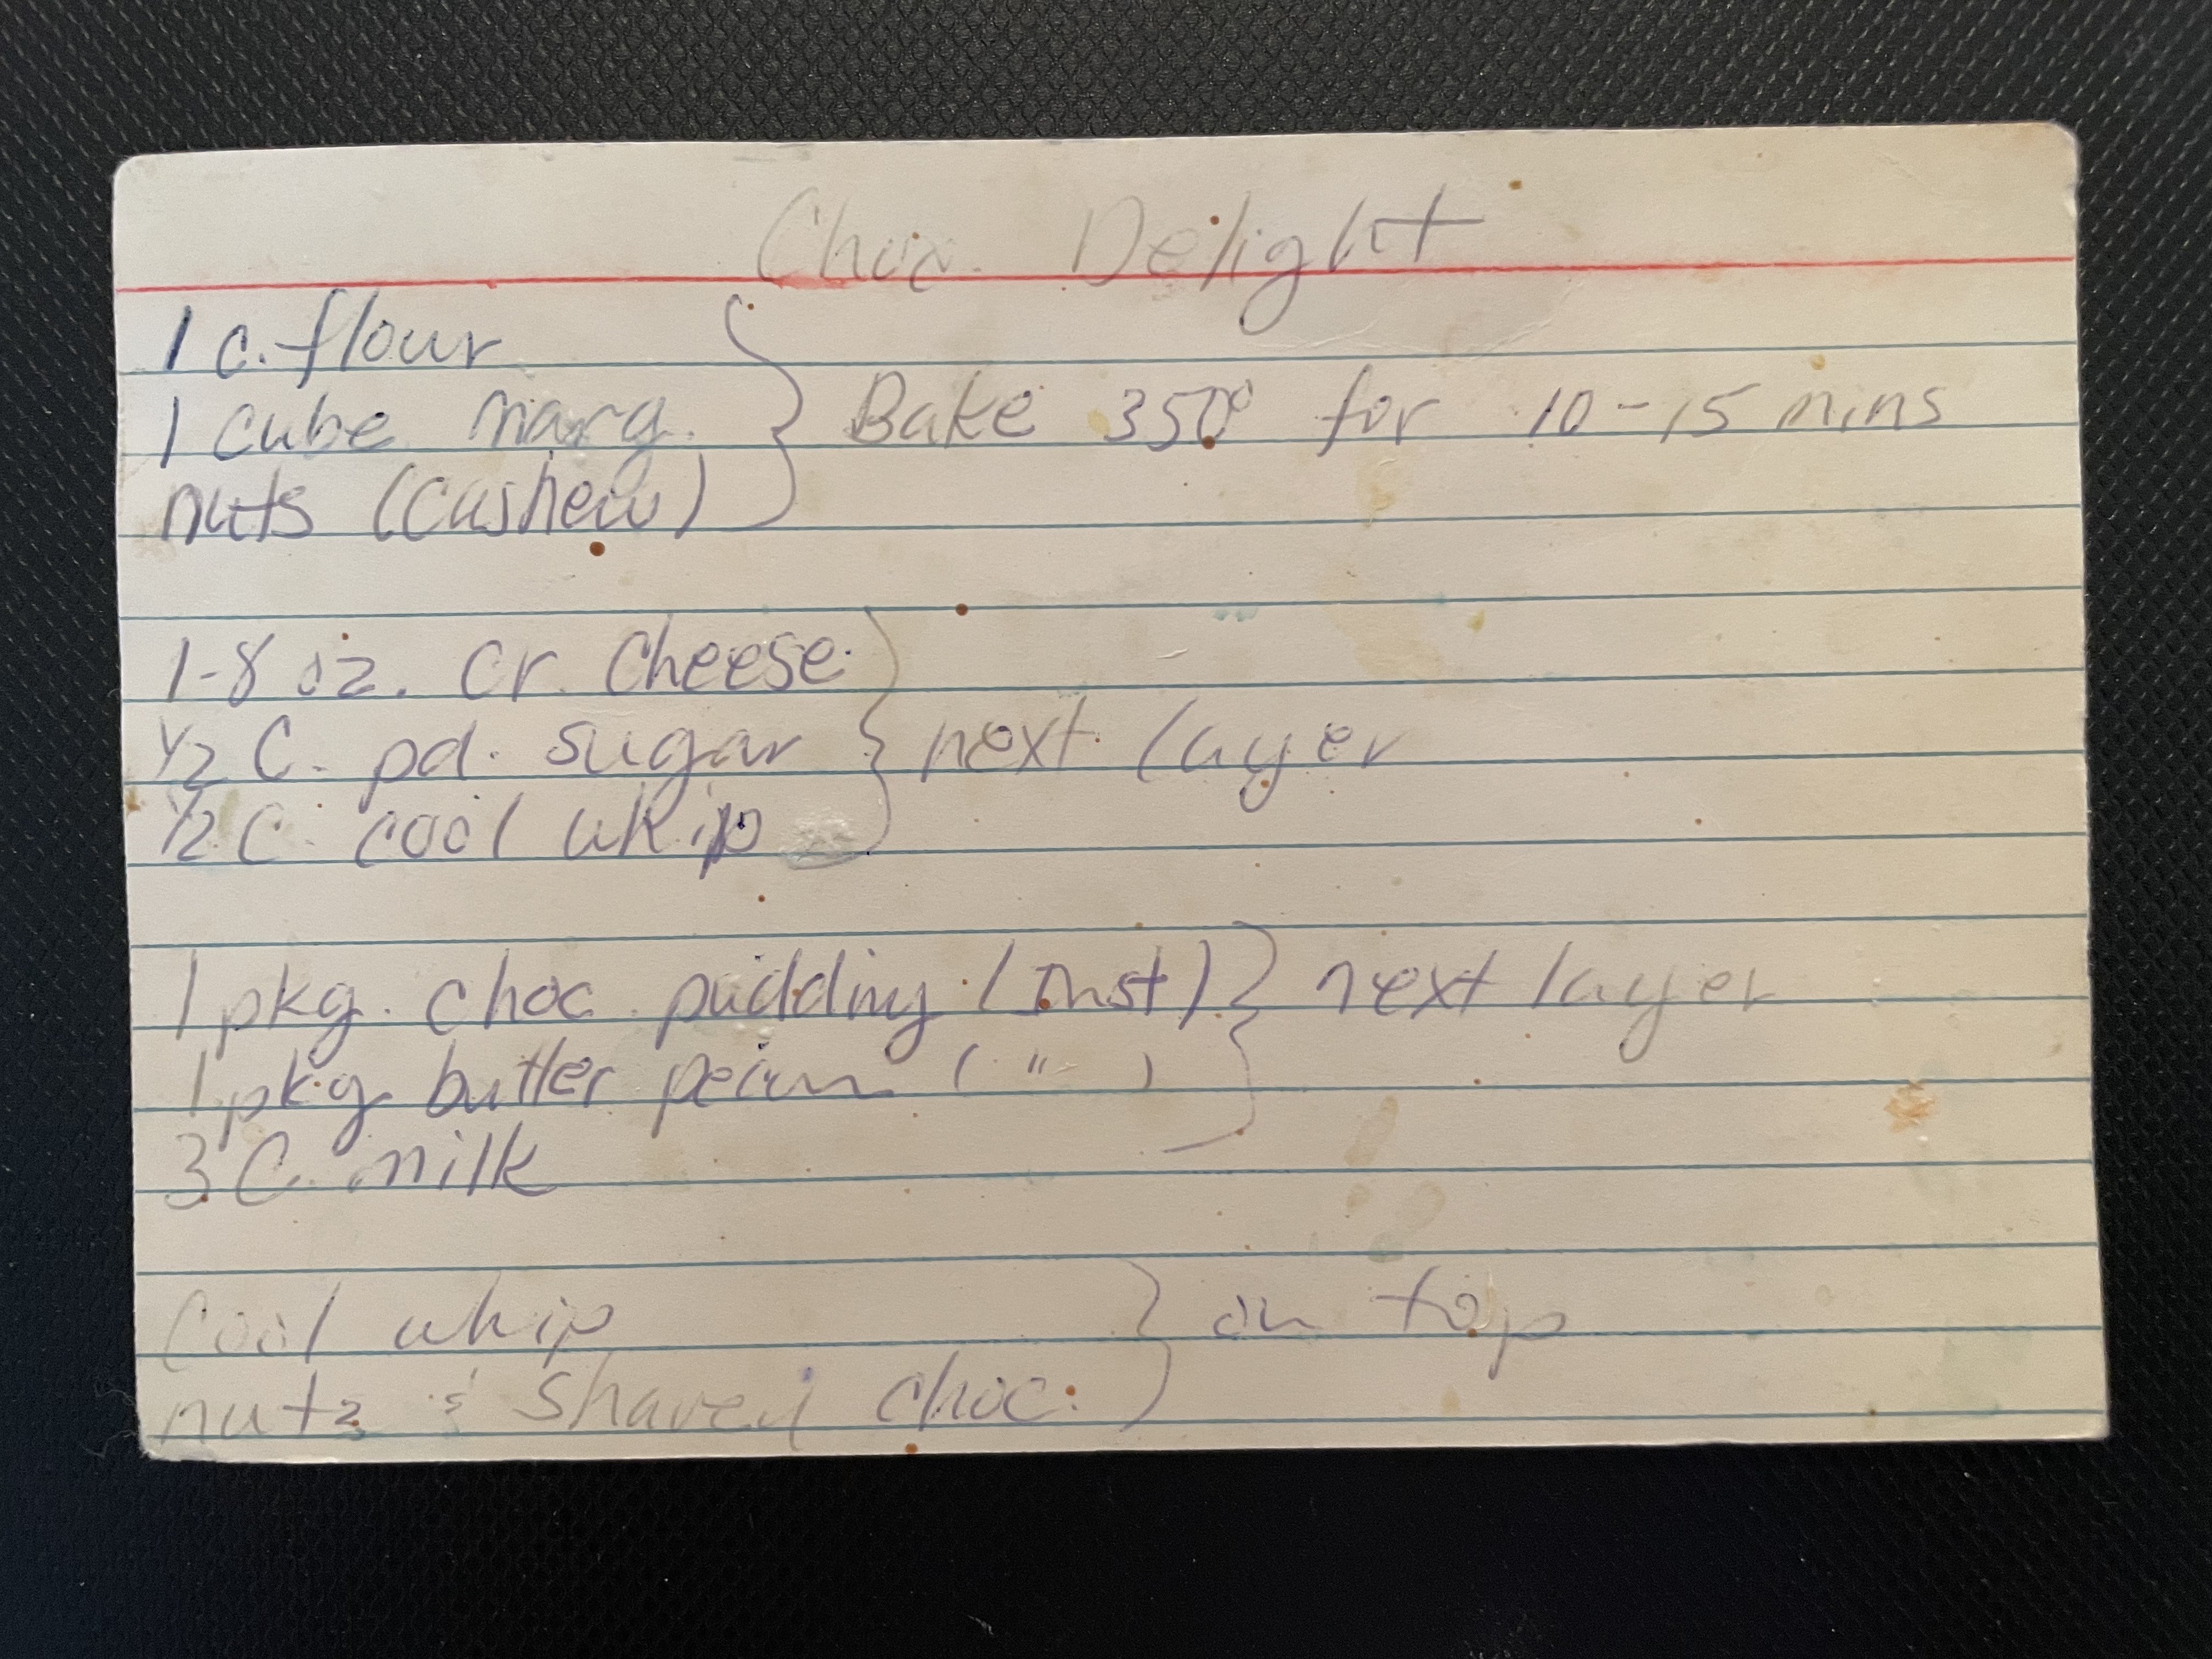 Choc. Delight
1 c. flour
1 cube marg. } Bake 350° for 10-15 mins
nuts (cashew)
1-8 oz. cr. cheese
1/2 C. pd. sugar } next layer
1/2 C. cool whip
1 pkg. choc. pudding (Inst) } next layer
1 pkg butter pecan ( " )
3 C. milk
Cool whip } on top
nuts & shaved choc.